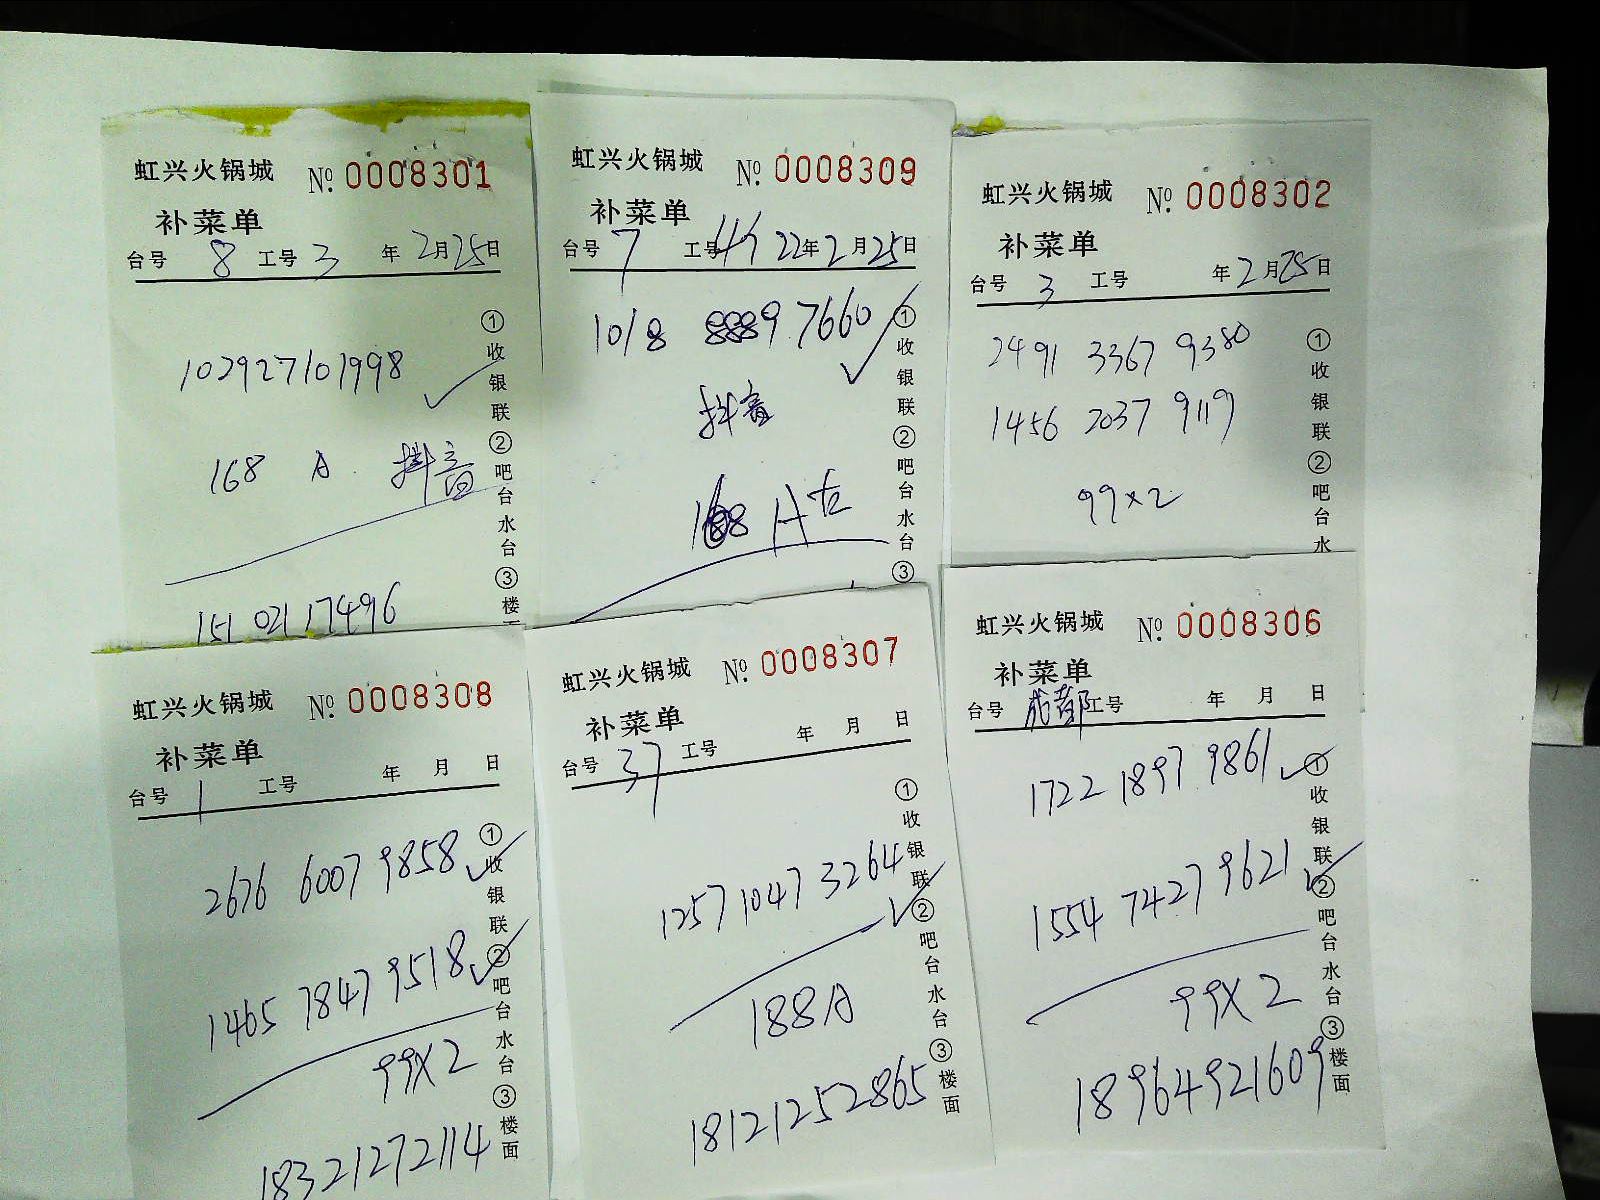 虹兴火锅城 № 0008301
补菜单
台号 8 工号 3 年 2月25日
102927101998
168 A 抖音
151 021 17496
①收银联②吧台水台③楼
虹兴火锅城 № 0008309
补菜单
台号 7 工号 22年2月25日
1018 8889 7660
抖音
168 A
①收银联②吧台水台③
虹兴火锅城 № 0008302
补菜单
台号 3 工号 年2月25日
2491 3367 9380
1456 2037 9119
99×2
①收银联②吧台水
虹兴火锅城 № 0008308
补菜单
台号 1 工号 年 月 日
2676 6007 9858
1465 7847 9518
99X2
18321272114
①收银联②吧台水台③楼面
虹兴火锅城 № 0008307
补菜单
台号 37 工号 年 月 日
1257 1047 3264
188A
18121252865
①收银联②吧台水台③楼面
虹兴火锅城 № 0008306
补菜单
台号 成都 工号 年 月 日
1722 1897 9861
1554 7427 9621
99X2
18964921609
①收银联②吧台水台③楼面